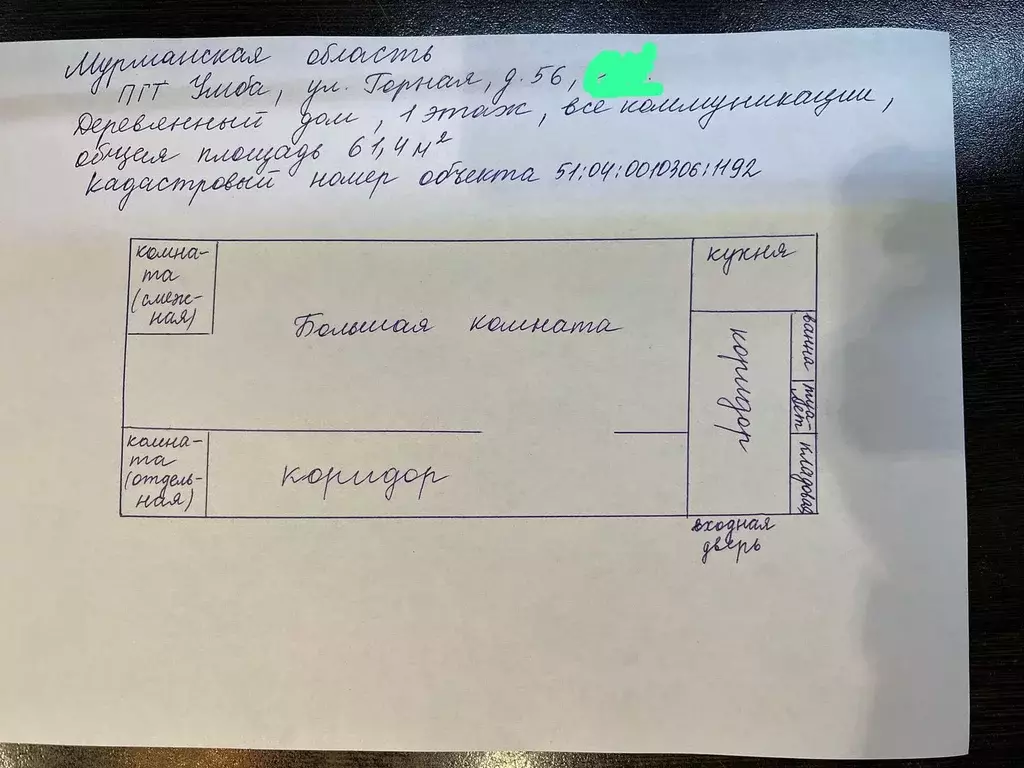 Мурманская область
ПГТ Умба, ул. Горная, д. 56,
Деревянный дом, 1 этаж, все коммуникации,
общая площадь 61,4 м²
Кадастровый номер объекта 51:04:0010306:1192
комна-
та
(смеж-
ная)
Большая комната
кухня
коридор
ванна
туа-
лет
кладовая
комна-
та
(отдель-
ная)
коридор
входная
дверь